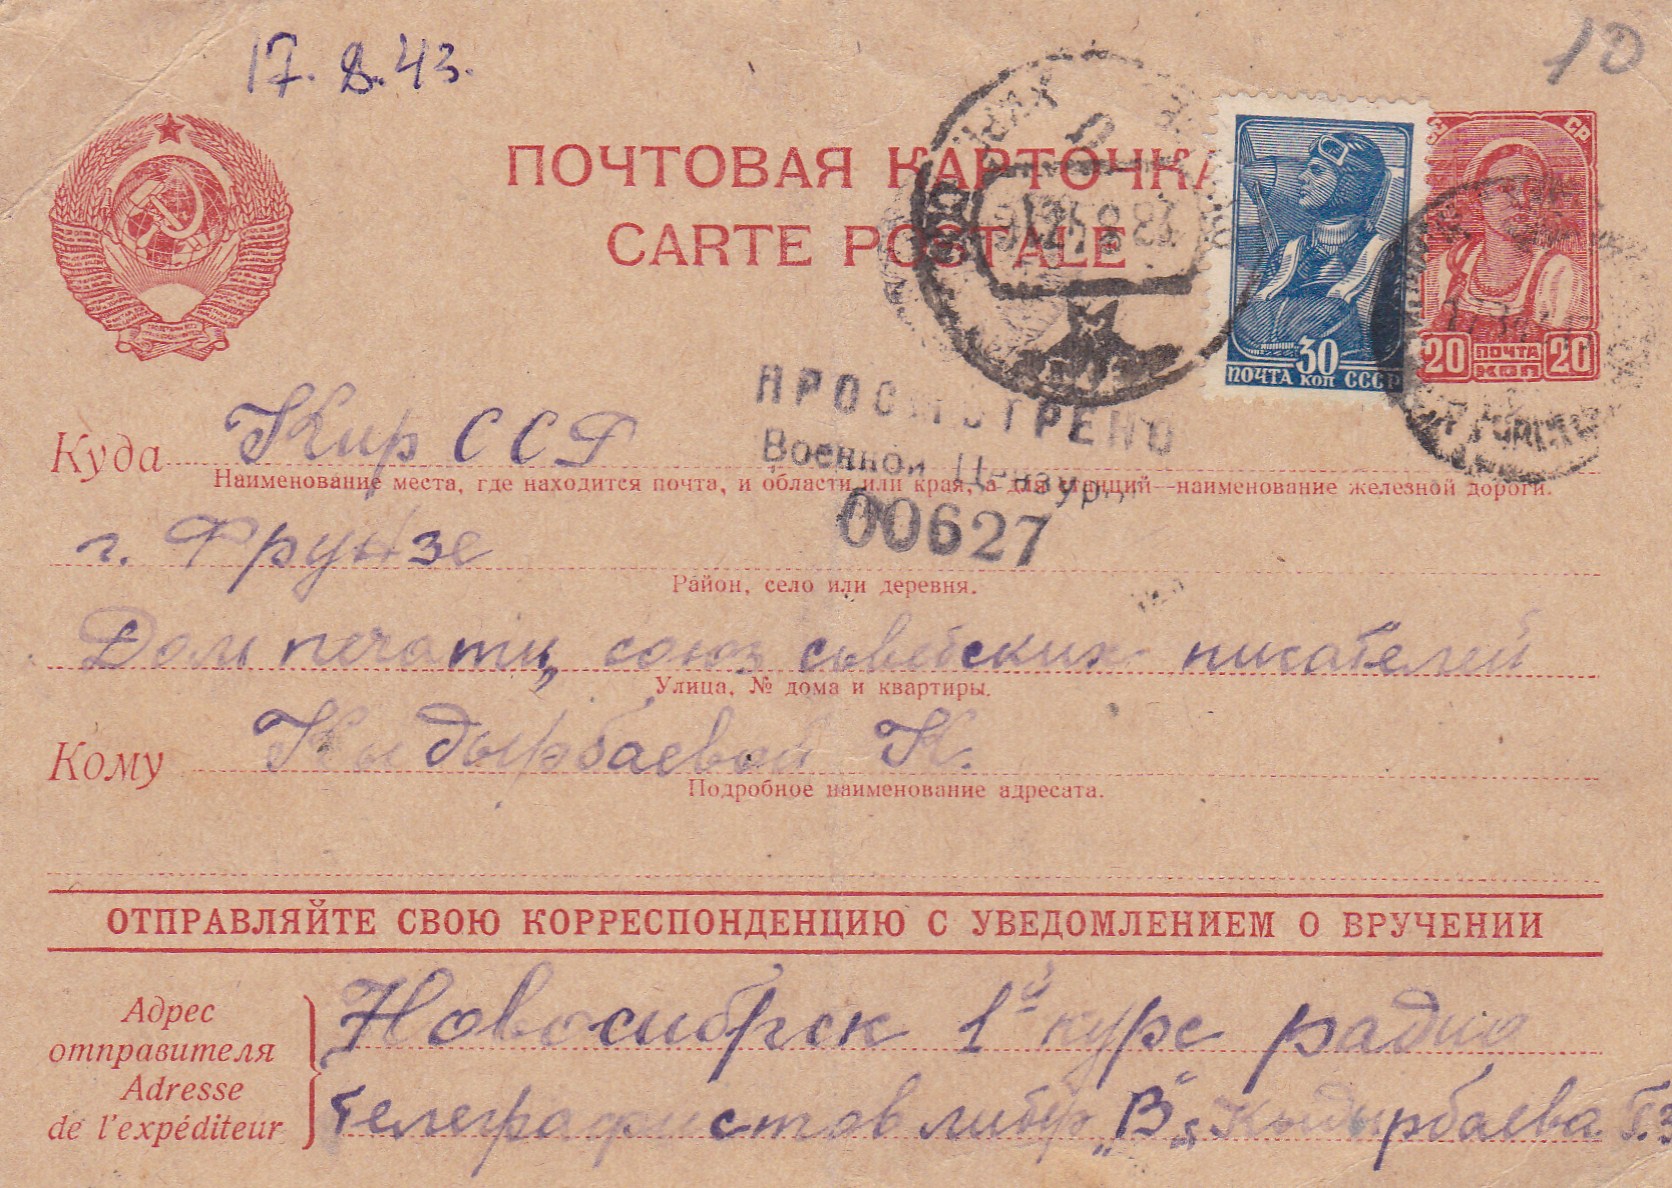 17. 8. 43.
10
ПОЧТОВАЯ КАРТОЧКА
CARTE POSTALE
30
ПОЧТА КОП СССР
20 ПОЧТА КОП 20
ПРОСМОТРЕНО
Военной Цензур
00627
Куда Кир ССР
Наименование места, где находится почта, и области или края, а для станций—наименование железной дороги.
г. Фрунзе
Район, село или деревня.
Дом печати, союз советских писателей
Улица, № дома и квартиры.
Кому Кыдырбаевой К.
Подробное наименование адресата.
ОТПРАВЛЯЙТЕ СВОЮ КОРРЕСПОНДЕНЦИЮ С УВЕДОМЛЕНИЕМ О ВРУЧЕНИИ
Адрес отправителя
Adresse de l'expéditeur
Новосибрск 1й курс радио
телеграфистов литер „В“ Кыдырбаева Г.З